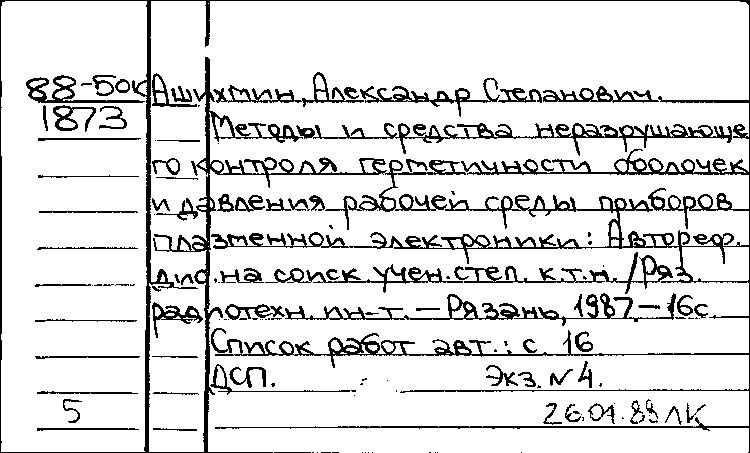 88-50к Ашихмин, Александр Степанович.
1873 Методы и средства неразрушающе
го контроля герметичности оболочек
и давления рабочей среды приборов
плазменной электроники: Автореф.
дис. на соиск. учен. степ. к.т.н. / Ряз.
радиотехн. ин-т. — Рязань, 1987. — 16с.
Список работ авт.: с. 16
ДСП. Экз. N4.
5 26.01.88 ЛК